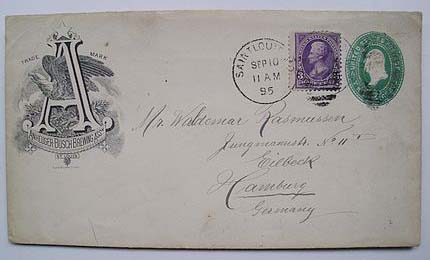 TRADE MARK
A
ANHEUSER-BUSCH BREWING ASS'N
ST. LOUIS
SAINT LOUIS
SEP 10
11 AM
95
3
Mr. Waldemar Rasmussen
Jungmannstr. No 11
Eilbeck
Hamburg
Germany